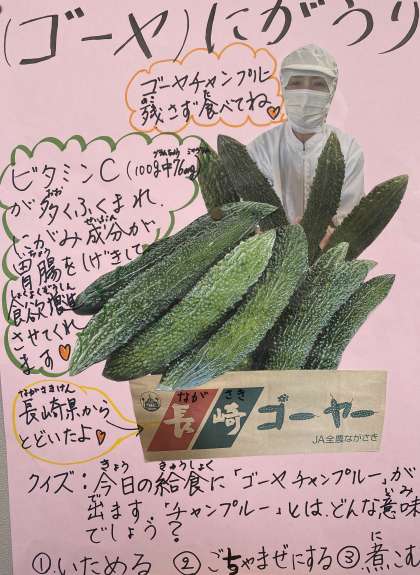 (ゴーヤ)にがうり
ゴーヤチャンプルに
残さず食べてね♡
ビタミンC(100g中76mg)
が多くふくまれ、
にがみ成分が
胃腸をしげきして
食欲増進
させてくれ
ます♡
長崎県から
とどいたよ♡
長崎ゴーヤー
JA全農ながさき
クイズ:今日の給食に「ゴーヤチャンプルー」が
出ます。「チャンプルー」とは、どんな意味
でしょう?
①いためる ②ごちゃまぜにする ③煮こす